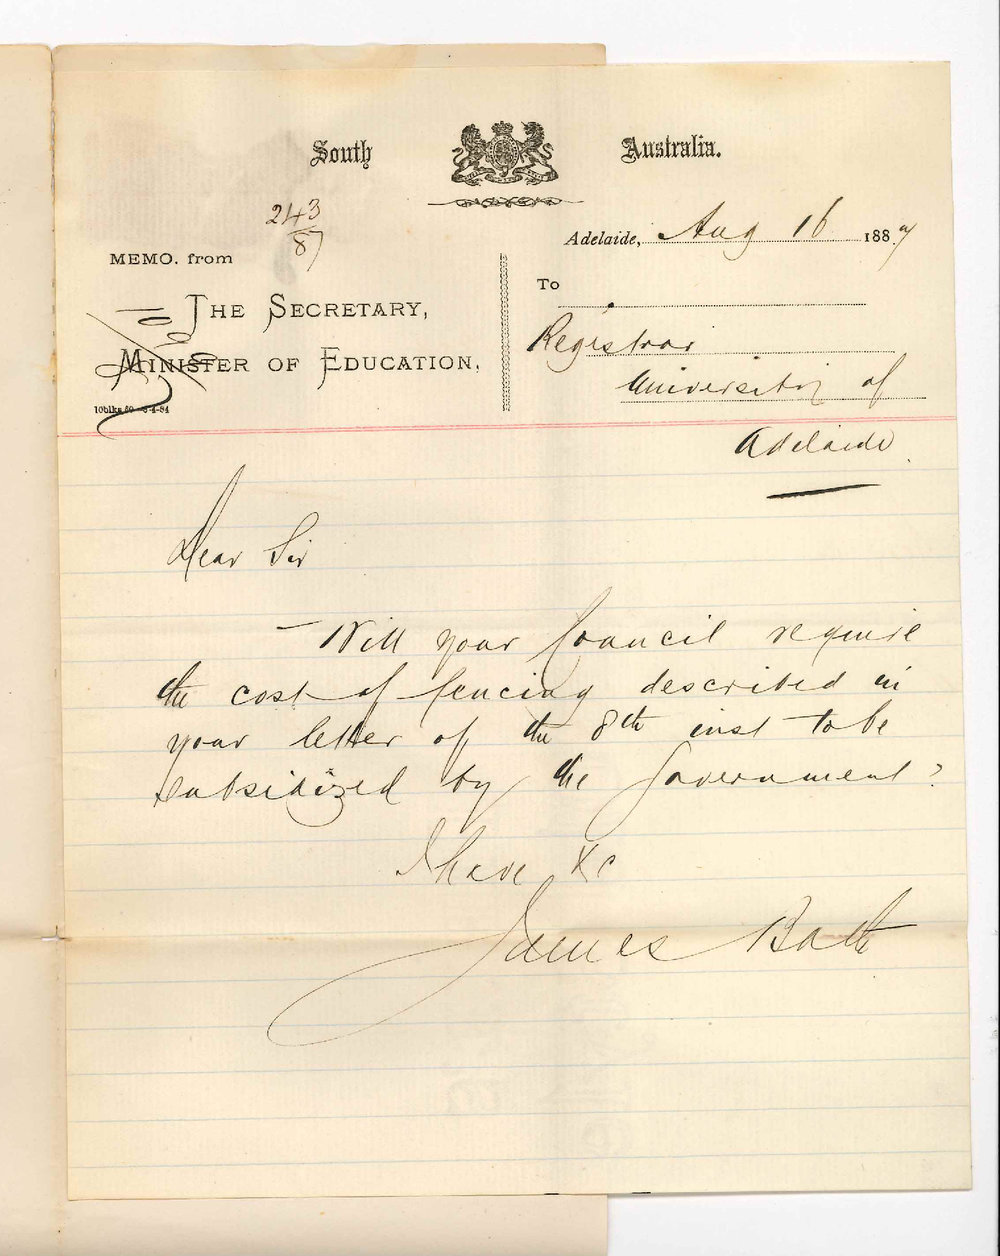 South Australia.
243
87
Adelaide, Aug 16 1887
MEMO. from
THE SECRETARY,
MINISTER OF EDUCATION,
To
Registrar
University of
Adelaide
Dear Sir
Will your Council require
the cost of fencing described in
your letter of the 8th inst to be
subsidized by the Government?
I have &c
James Bath